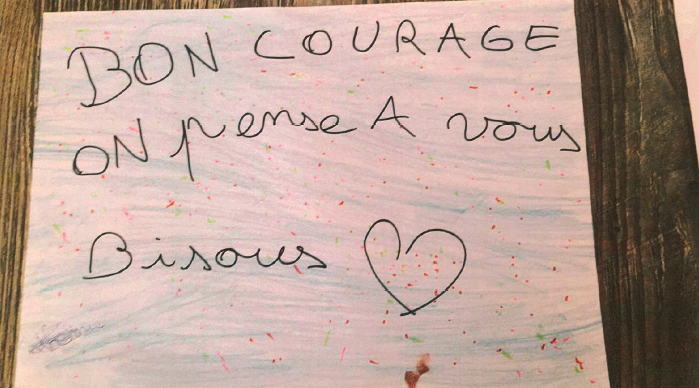 BON COURAGE
ON pense A vous
Bisous